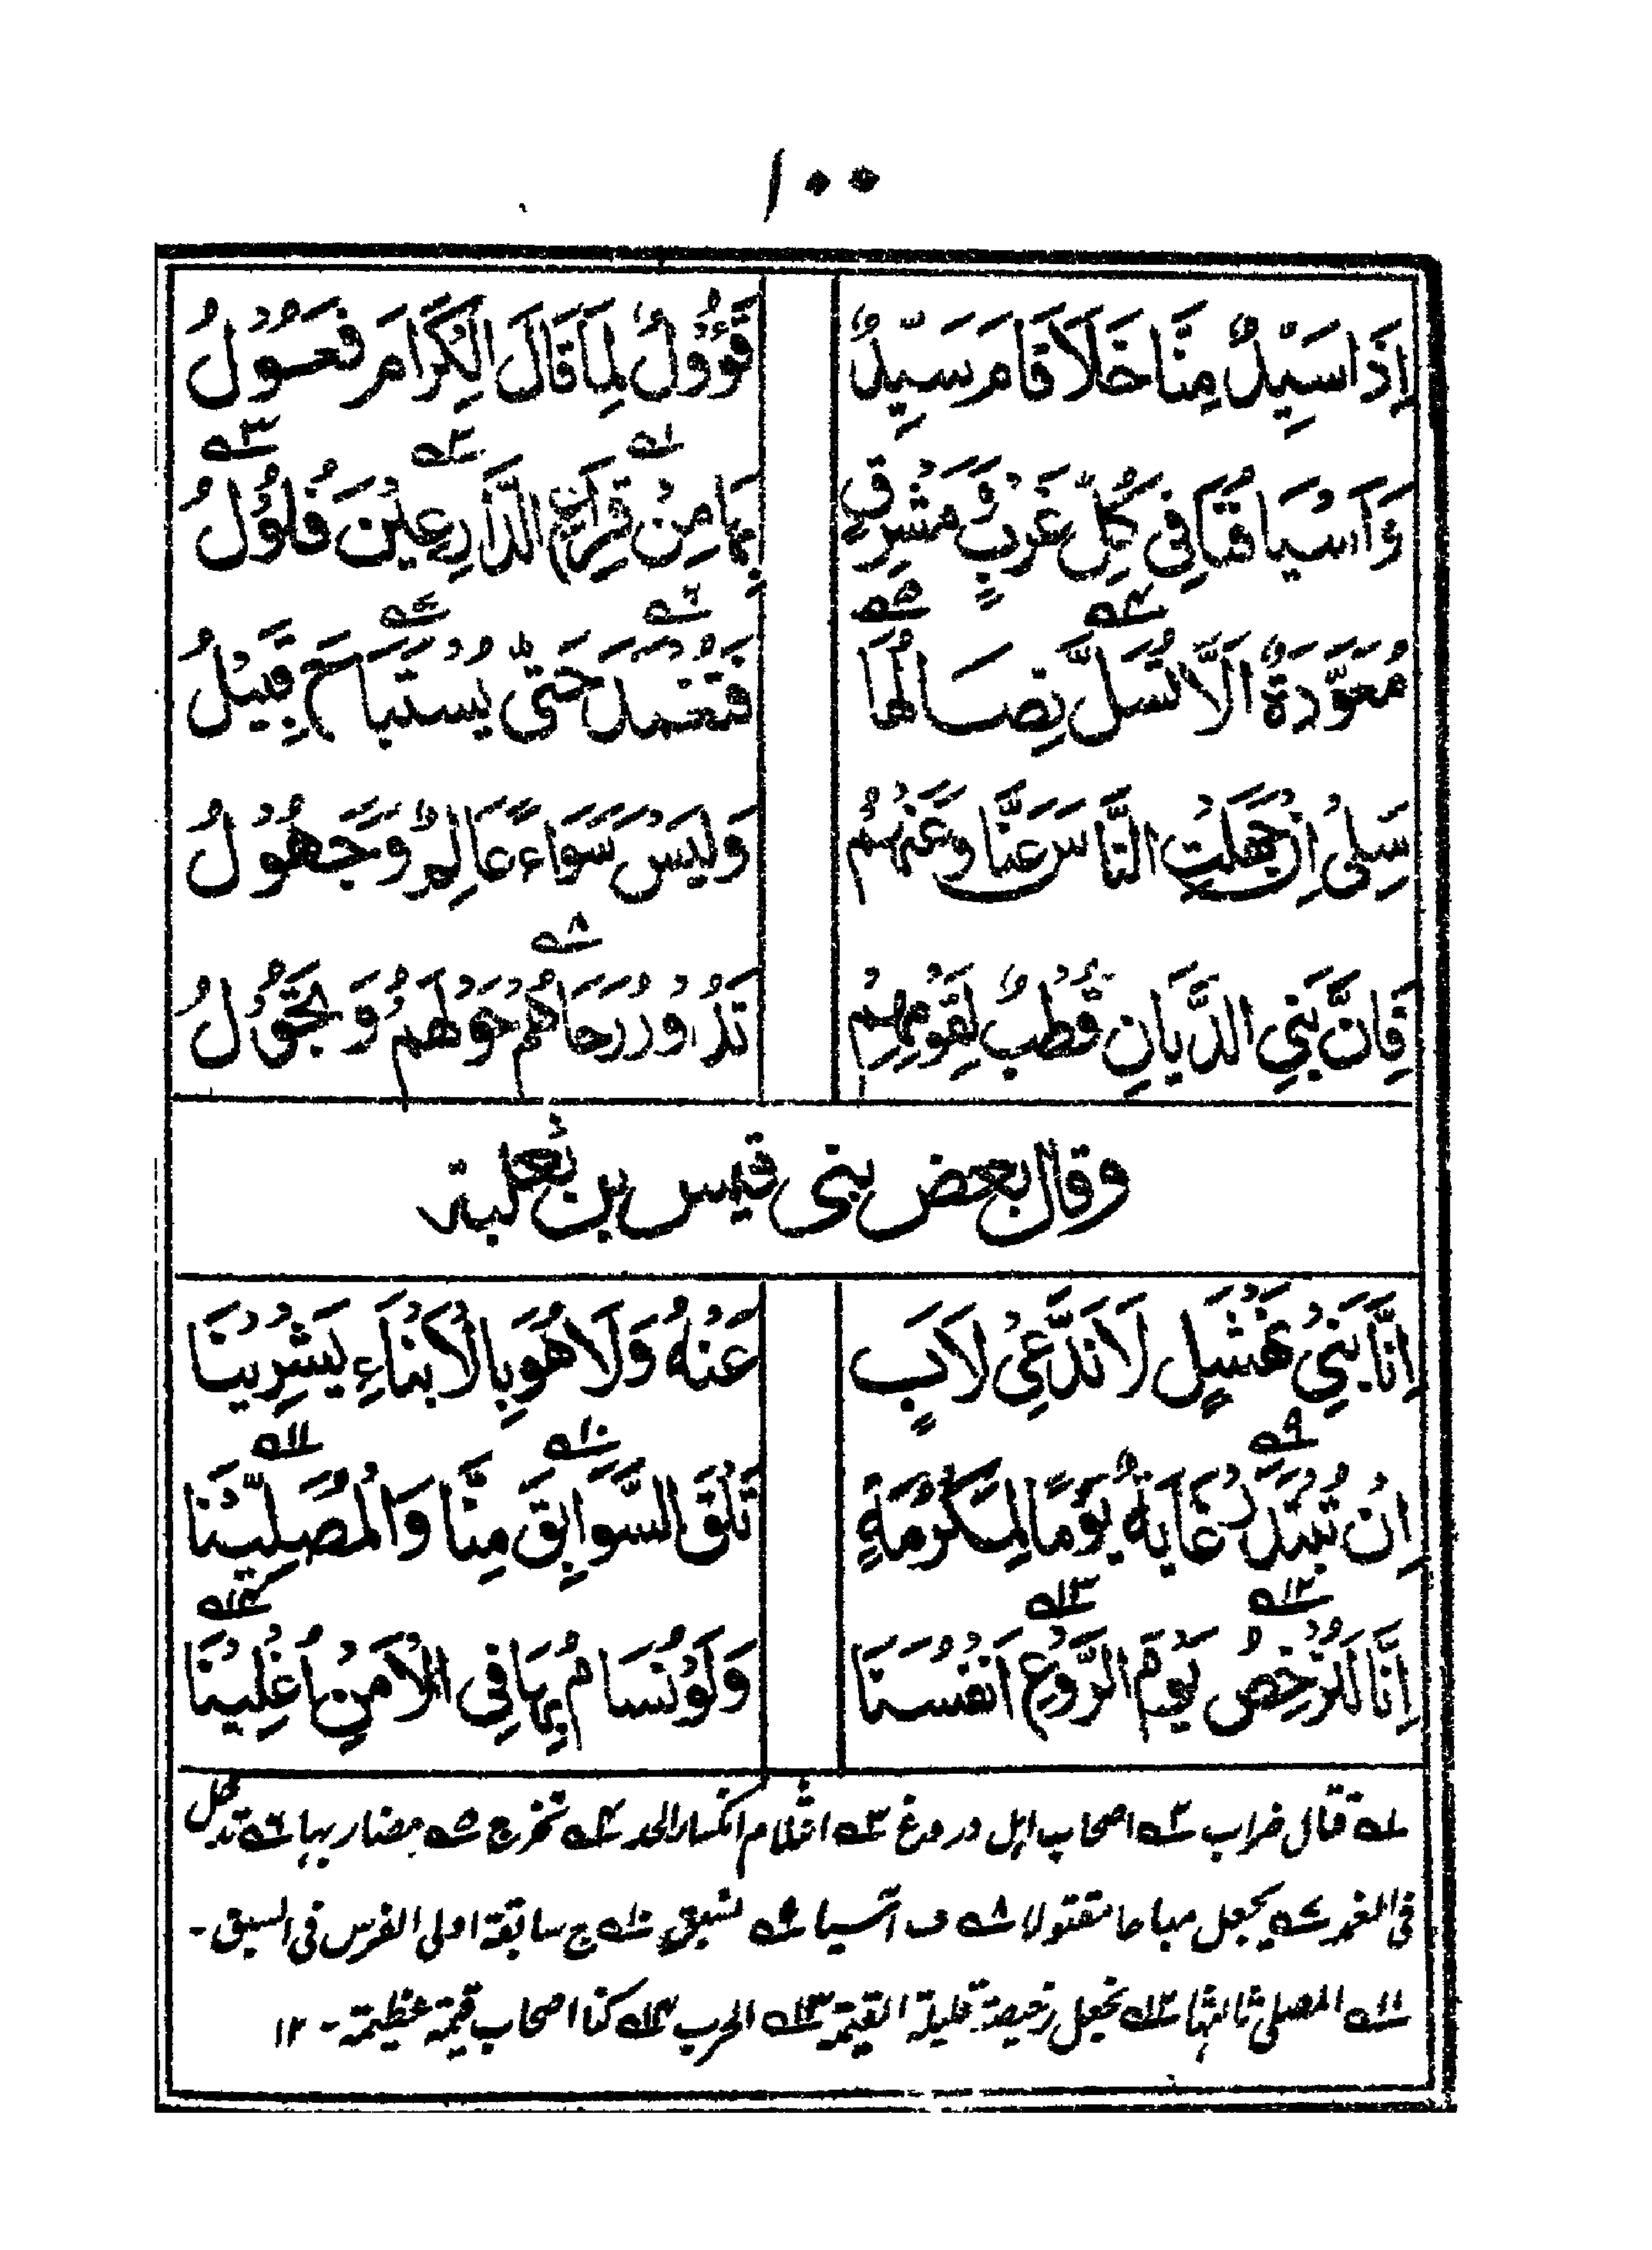 ١٠٠
إِذَا سَيِّدٌ مِنَّا خَلَا قَامَ سَيِّدٌ قَؤُوْلٌ لِمَا قَالَ الْكِرَامُ فَعُوْلُ
وَاَسْيَافُنَا فِيْ كُلِّ غَرْبٍ وَّمَشْرِقٍ بِهَا مِنْ قِرَاعِ الدَّارِعِيْنَ فُلُوْلُ
مُعَوَّدَةٌ اَلَّا تُسَلَّ نِصَالُهَا فَتُغْمَدَ حَتّٰى يُسْتَبَاحَ قَبِيْلُ
سَلِيْ اِنْ جَهِلْتِ النَّاسَ عَنَّا وَعَنْهُمْ وَلَيْسَ سَوَاءً عَالِمٌ وَجَهُوْلُ
فَاِنَّ بَنِي الدَّيَّانِ قُطْبٌ لِقَوْمِهِمْ تَدُوْرُ رَحَاهُمْ حَوْلَهُمْ وَتَجُوْلُ
وقال بعض بني قيس بن ثعلبة
اِنَّا بَنِيْ نَهْشَلٍ لَا نَدَّعِيْ لِاَبٍ عَنْهُ وَلَا هُوَ بِالْاَبْنَاءِ يَشْرِيْنَا
اِنْ تُبْتَدَرْ غَايَةٌ يَوْمًا لِمَكْرُمَةٍ تَلْقَ السَّوَابِقَ مِنَّا وَالْمُصَلِّيْنَا
اِنَّا لَنُرْخِصُ يَوْمَ الرَّوْعِ اَنْفُسَنَا وَلَوْ نُسَامُ بِهَا فِي الْاَمْنِ اُغْلِيْنَا
١ قتال ضراب ٢ اصحاب اہل دروع ٣ انثلام انكسار الحد ٤ تخرج ٥ مضاربها ٦ تدخل
في الغمد ٧ يجعل مباحا مقتولا ٨ ف آسيا ٩ تسبق ١٠ ج سابقة اولى الفرس في السبق -
١١ المصلى ثالثها ١٢ نجعل رخيصة قليلة القيمة ١٣ الحرب ١٤ كنا اصحاب قيمة عظيمة - ١٢